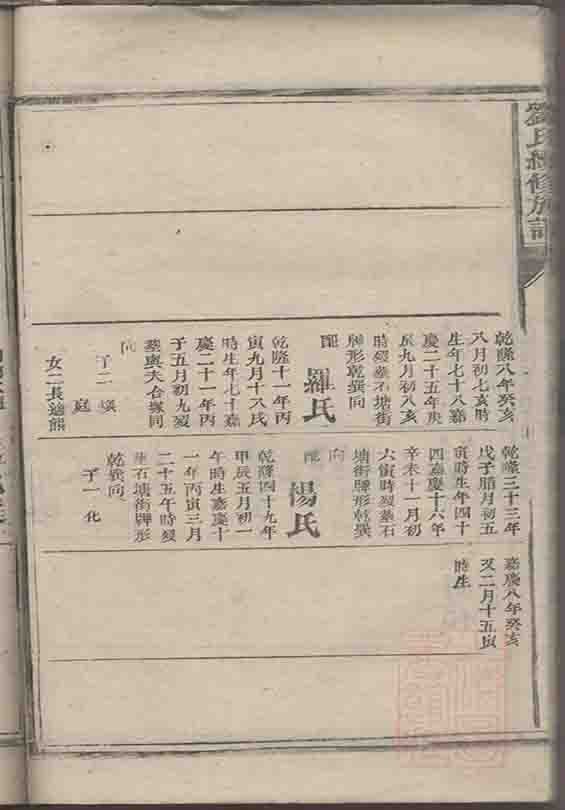 劉氏續修族譜
乾隆八年癸亥
八月初七亥時
生年七十八嘉
慶二十五年庚
辰九月初八亥
時歿葬石塘街
牌形乾巽向
配
羅氏
乾隆十一年丙
寅九月十八戌
時生年七十嘉
慶二十一年丙
子五月初九歿
葬與夫合塚同
向
子二
庭
女二長適熊
乾隆三十三年
戊子腊月初五
寅時生年四十
四嘉慶十六年
辛未十一月初
六寅時歿葬石
塘街牌形乾巽
向
配
楊氏
乾隆四十九年
甲辰五月初一
午時生嘉慶十
一年丙寅三月
二十五午時歿
葬石塘街牌形
乾巽向
子一 化
嘉慶八年癸亥
又二月十五寅
時生